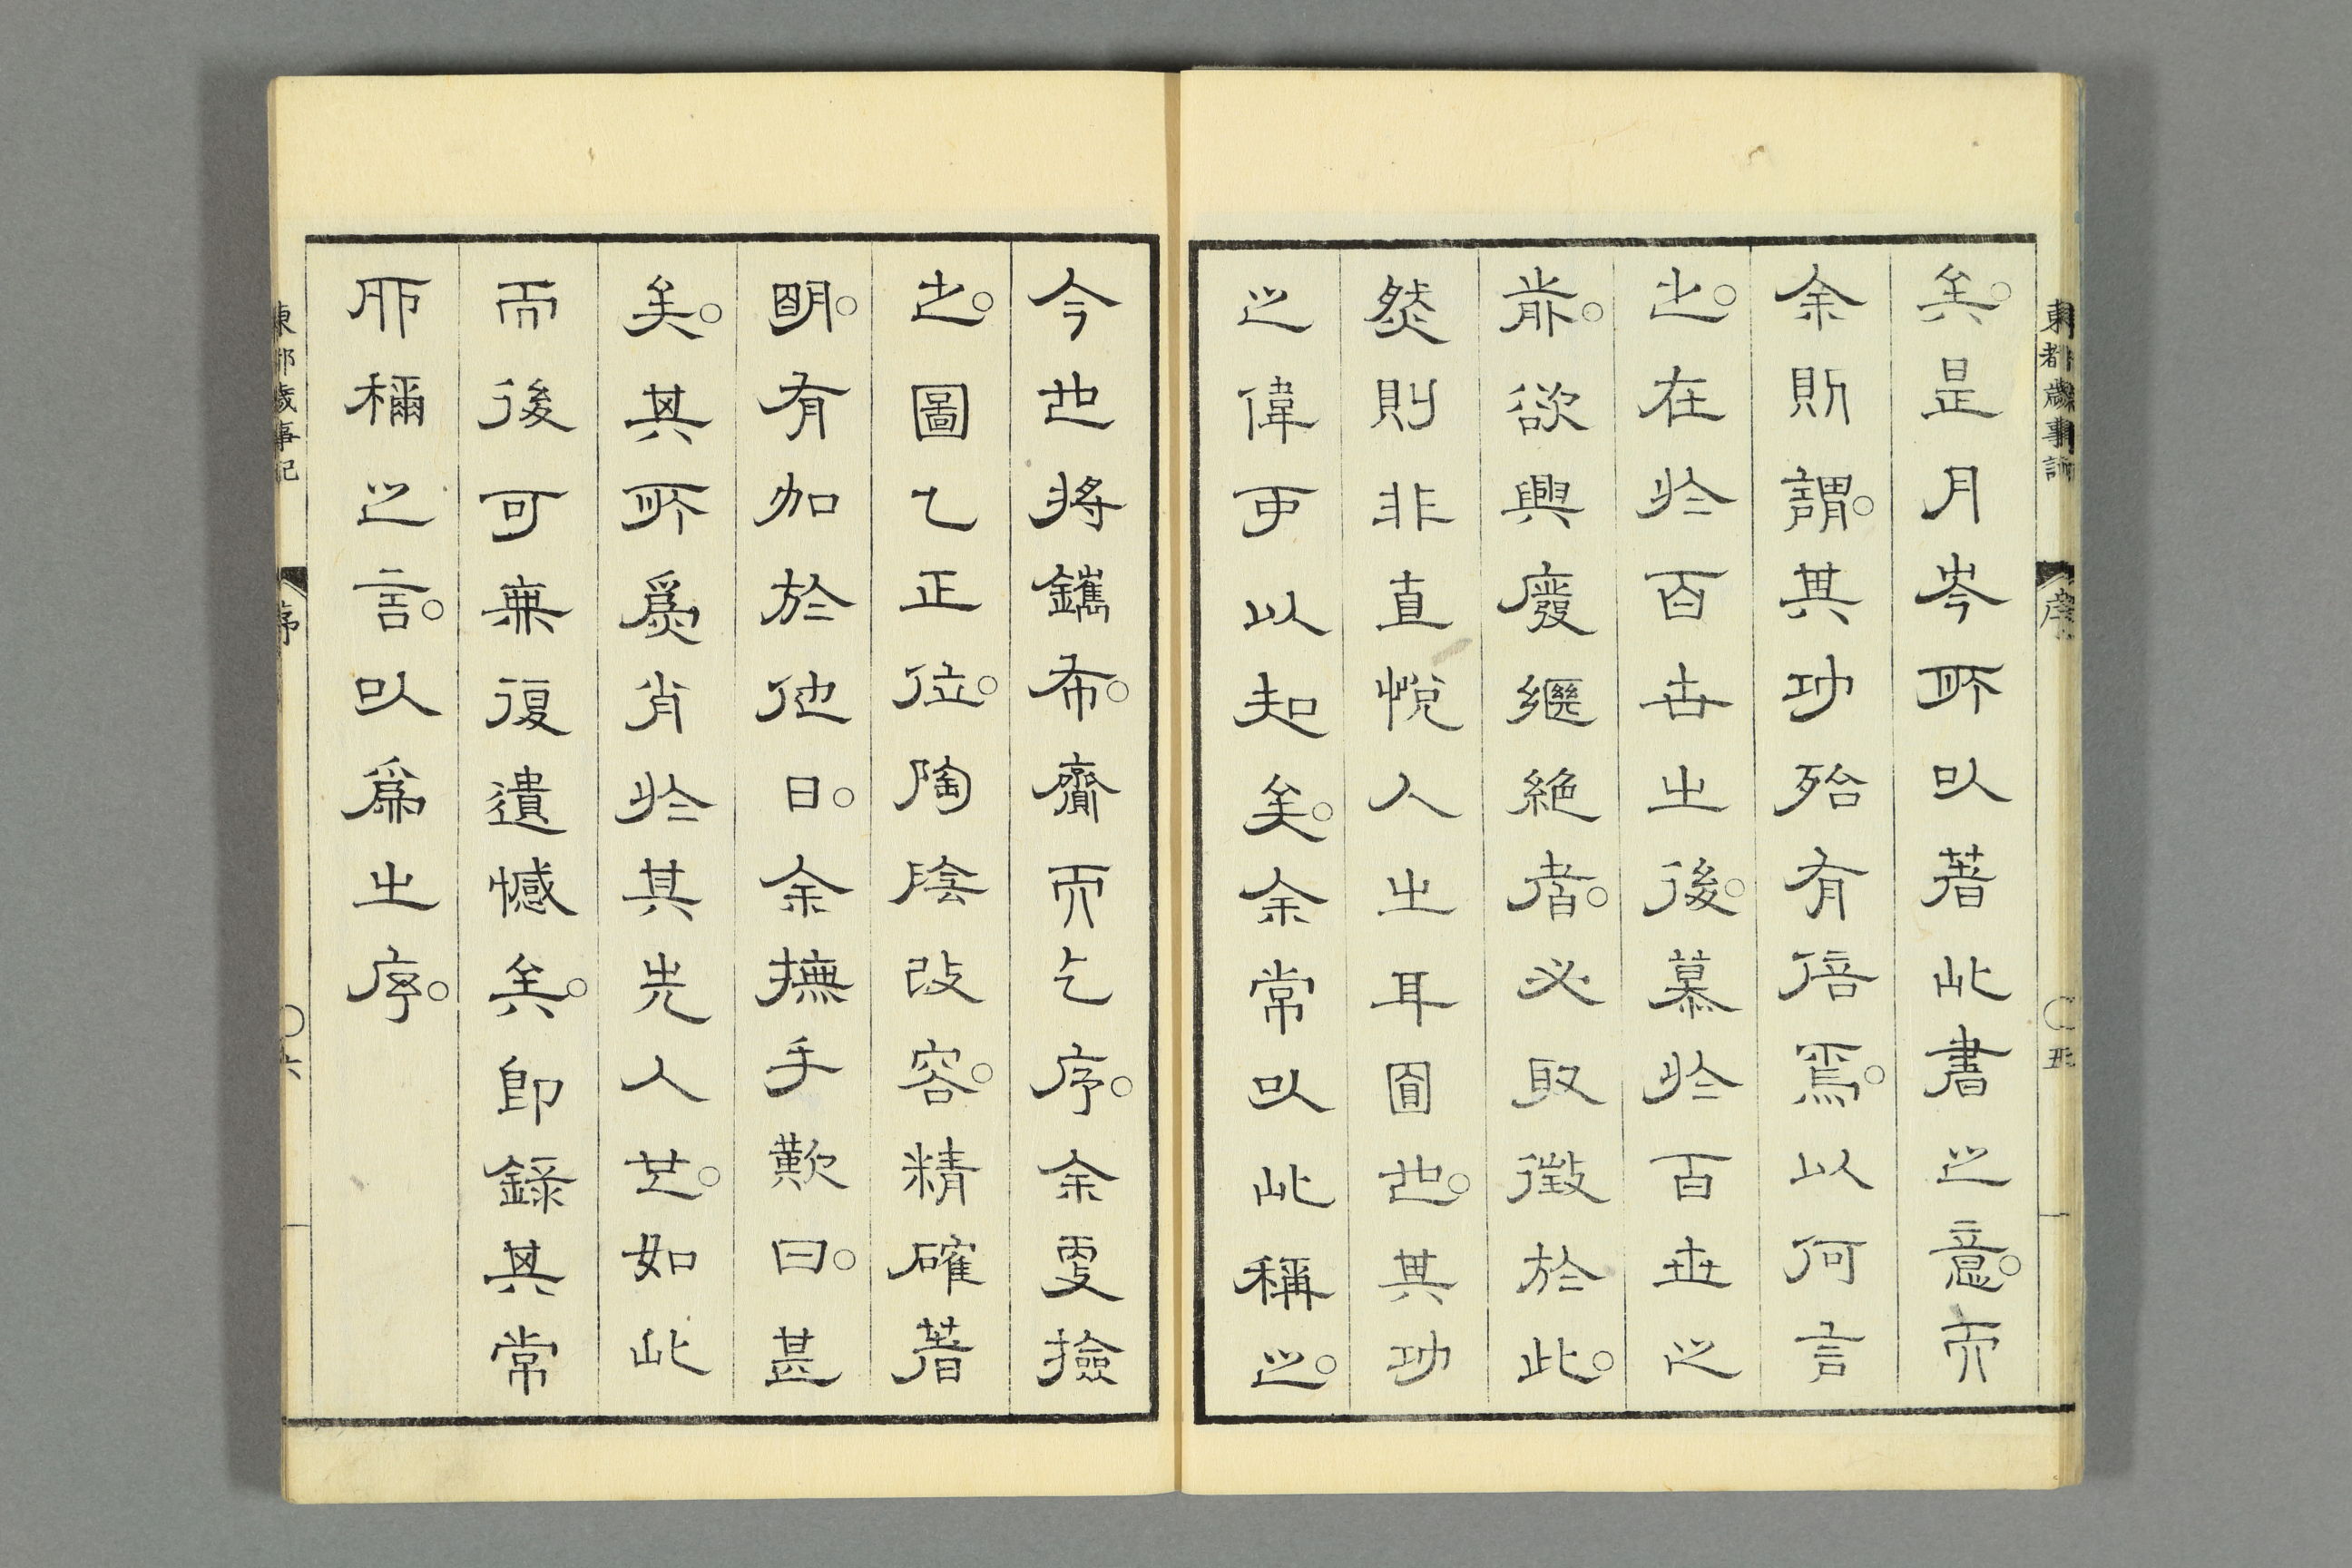 東都歳事記 序 〇五
矣。是月岑所以著此書之意。而
余則謂。其功殆有倍焉。以何言
之。在於百世之後。慕於百世之
前。欲興廢繼絶者。必取徵於此。
然則非直悅人之耳目也。其功
之偉可以知矣。余常以此稱之。
今也將鐫布。齎而乞序。余更撿
之。圖乙正位。陶陰改容。精確著
明。有加於他日。余撫手歎曰。甚
矣。其所爲肖於其先人也。如此
而後可無復遺憾矣。即錄其常
所稱之言。以爲之序。
東都歳事記 序 〇六